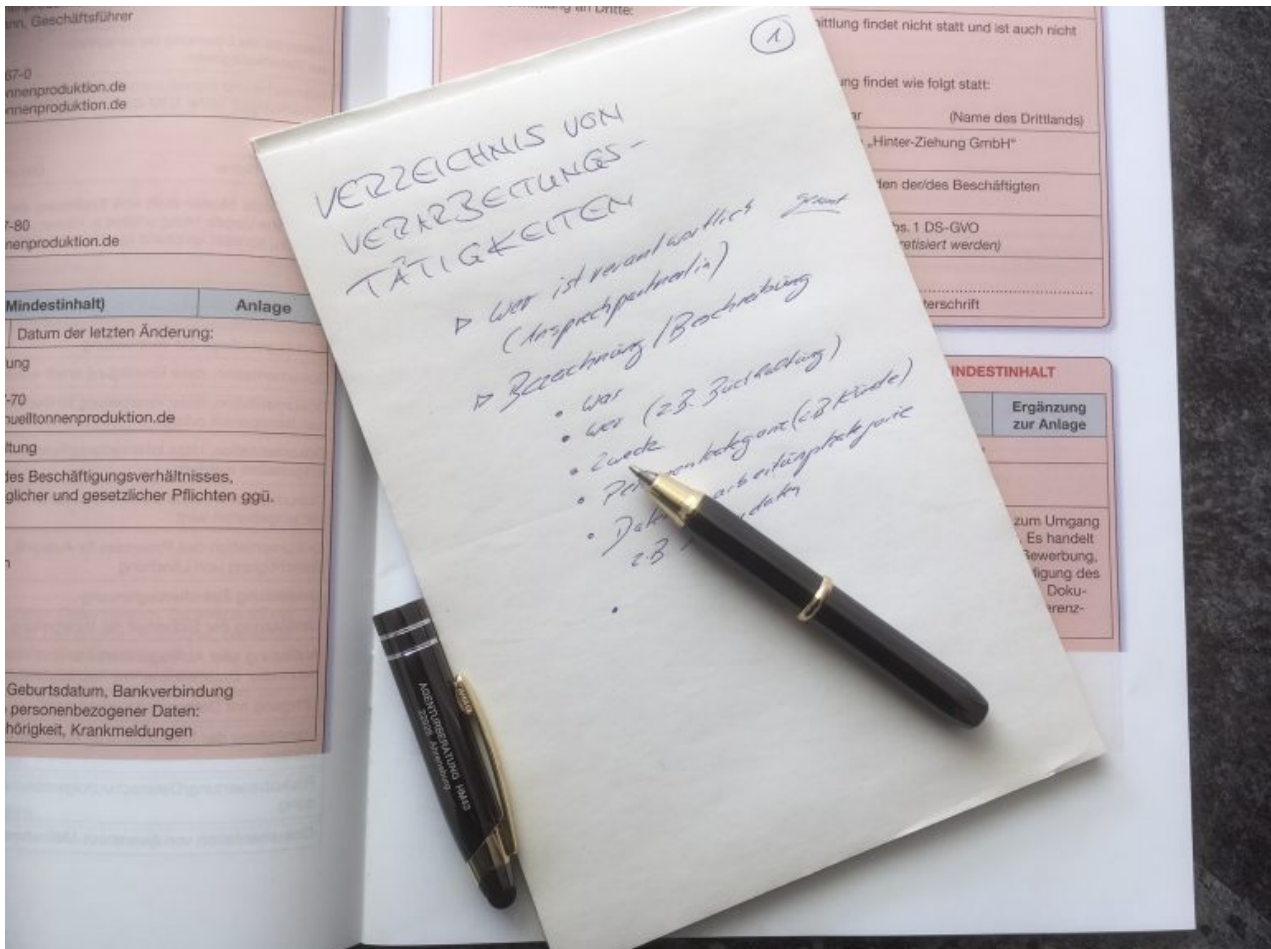 nn, Geschäftsführer
67-0
nnenproduktion.de
onnenproduktion.de
7-80
nenproduktion.de
Mindestinhalt) Anlage
Datum der letzten Änderung:
ung
-70
nuelltonnenproduktion.de
ltung
des Beschäftigungsverhältnisses,
glicher und gesetzlicher Pflichten ggü.
Geburtsdatum, Bankverbindung
personenbezogener Daten:
hörigkeit, Krankmeldungen
①
VERZEICHNIS VON
VERARBEITUNGS-
TÄTIGKEITEN
▷ Wer ist verantwortlich
(Ansprechpartner/in)
▷ Bezeichnung / Beschreibung
• was
• wer (z.B. Buchhaltung)
• Zweck
• Per onenkategorie (z.B. Kunde)
• Daten arbeitungskategorie
z.B daten
•
AGENTURBERATUNG HM43
22926 Ahrensburg
mittlung an Dritte:
mittlung findet nicht statt und ist auch nicht
ung findet wie folgt statt:
ar (Name des Drittlands)
„Hinter-Ziehung GmbH"
den der/des Beschäftigten
bs. 1 DS-GVO
retisiert werden)
terschrift
INDESTINHALT
Ergänzung
zur Anlage
zum Umgang
Es handelt
Bewerbung,
igung des
Doku-
erenz-